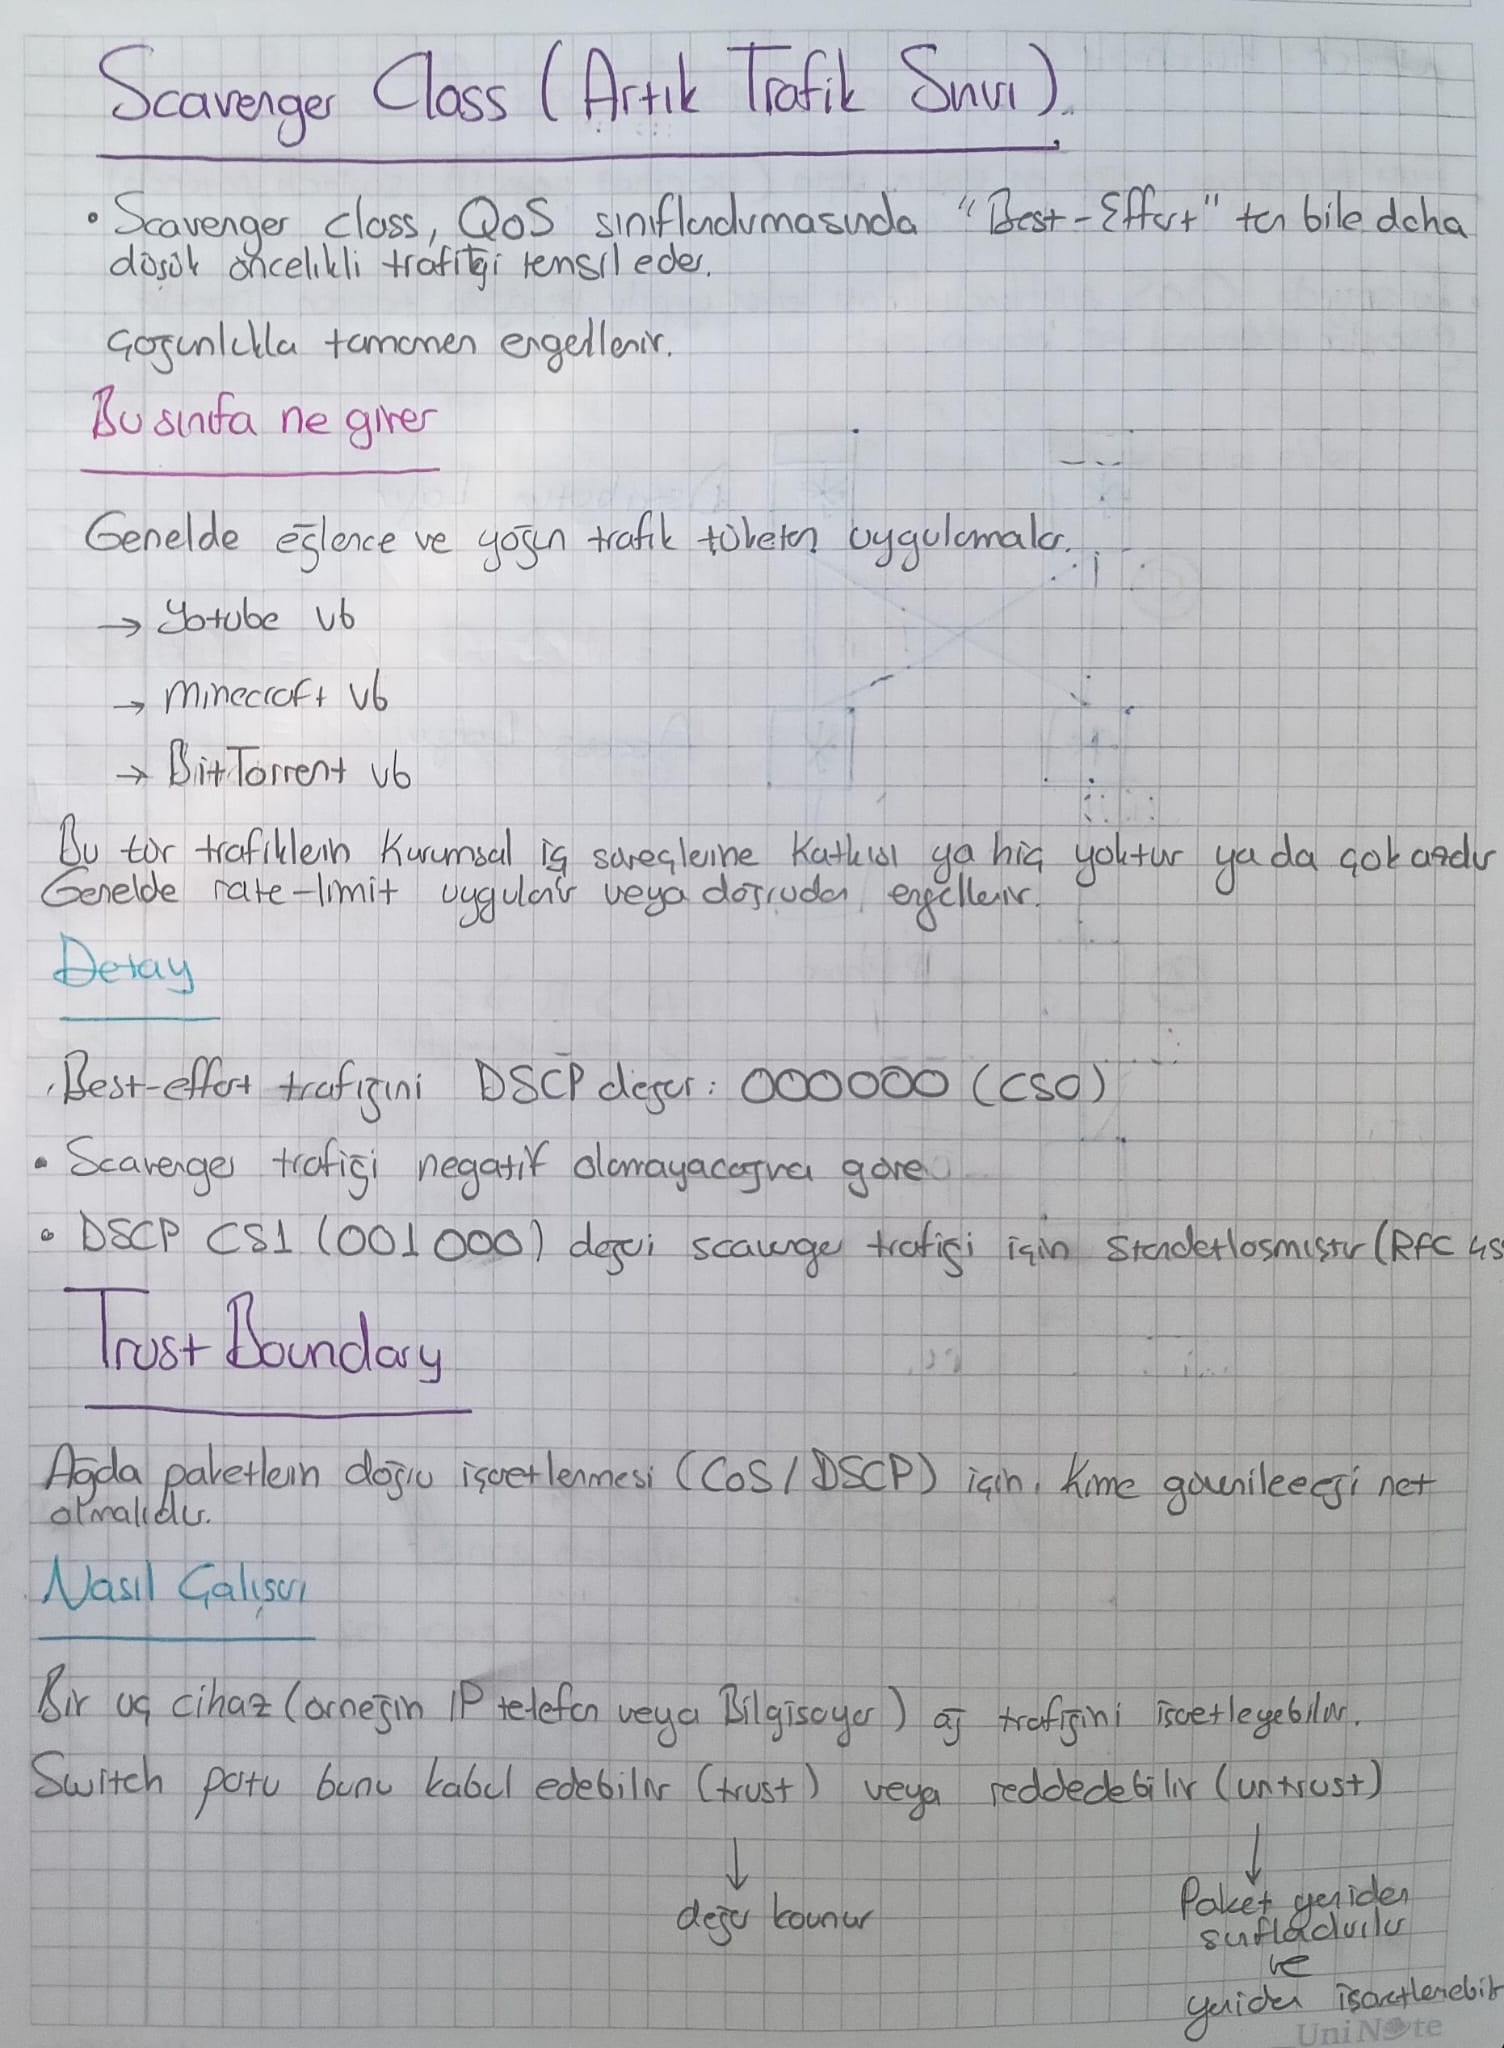 Scavenger Class (Artık Trafik Sınıfı)
• Scavenger class, QoS sınıflandırmasında "Best-Effort" ten bile daha
düşük öncelikli trafiği temsil eder.
Çoğunlukla tamamen engellenir.
Bu sınıfa ne girer
Genelde eğlence ve yoğun trafik tüketen uygulamalar.
→ Yotube vb
→ Minecraft vb
→ BitTorrent vb
Bu tür trafiklerin Kurumsal iş süreçlerine Katkısı ya hiç yoktur ya da çok azdır
Genelde rate-limit uygulanır veya doğrudan engellenir.
Detay
• Best-effort trafiğini DSCP değer: 000000 (CS0)
• Scavenger trafiği negatif olamayacağına göre
• DSCP CS1 (001000) değeri scavenger trafiği için Standartlaşmıştır (RFC 45
Trust Boundary
Ağda paketlerin doğru işaretlenmesi (CoS/DSCP) için, Kime güvenileceği net
olmalıdır.
Nasıl Çalışır
Bir uç cihaz (örneğin IP telefon veya Bilgisayar) ağ trafiğini işaretleyebilir.
Switch portu bunu kabul edebilir (trust) veya reddedebilir (untrust)
↓ ↓
değer korunur
Paket yeniden
sınıflandırılır
ve
yeniden işaretlenebilir
UniNote